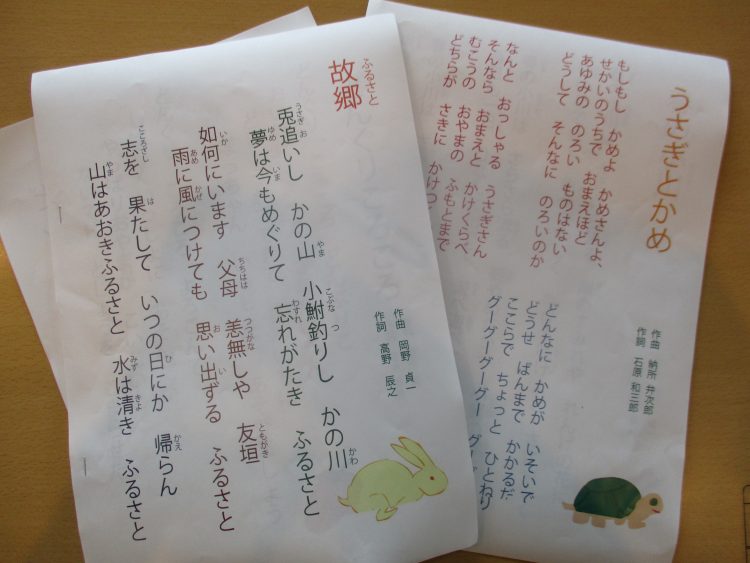 うさぎとかめ
作曲 納所 弁次郎
作詞 石原 和三郎
もしもし かめよ かめさんよ、
せかいのうちで おまえほど
あゆみの のろい ものはない
どうして そんなに のろいのか
なんと おっしゃる うさぎさん
そんなら おまえと かけくらべ
むこうの おやまの ふもとまで
どちらが さきに かけつ
どんなに かめが いそいで
どうせ ばんまで かかるだ
ここらで ちょっと
グーグーグーグー グー
ふるさと
故郷
作曲 岡野 貞一
作詞 高野 辰之
うさぎ お やま こぶな つ かわ
兎追いし かの山 小鮒釣りし かの川
ゆめ いま わすれ
夢は今もめぐりて 忘れがたき ふるさと
いか ちちはは つつがな ともがき
如何にいます 父母 恙無しや 友垣
あめ かぜ お い
雨に風につけても 思い出ずる ふるさと
こころざし は ひ かえ
志を 果たして いつの日にか 帰らん
やま みず きよ
山はあおきふるさと 水は清き ふるさと